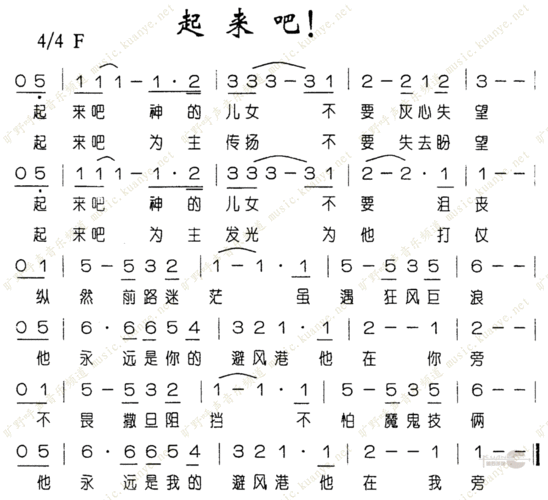 起来吧！
4/4 F
0 5 | 1 1 1 - 1 · 2 | 3 3 3 - 3 1 | 2 - 2 1 2 | 3 - -
起 来吧 神 的 儿女 不 要 灰心失 望
起 来吧 为 主 传扬 不 要 失去盼 望
0 5 | 1 1 1 - 1 · 2 | 3 3 3 - 3 1 | 2 - 2 · 1 | 2 - -
起 来吧 神 的 儿女 不 要 沮 丧
起 来吧 为 主 发光 为 他 打 仗
0 1 | 5 - 5 3 2 | 1 - 1 · 1 | 5 - 5 3 5 | 6 - -
纵 然 前路迷 茫 虽 遇 狂风巨 浪
0 5 | 6 · 6 6 5 4 | 3 2 1 · 1 | 2 - - 1 | 2 - -
他 永 远是你的 避风港 他 在 你 旁
0 1 | 5 - 5 3 2 | 1 - 1 · 1 | 5 - 5 3 5 | 6 - -
不 畏 撒旦阻 挡 不 怕 魔鬼技 俩
0 5 | 6 · 6 6 5 4 | 3 2 1 · 1 | 2 - - 2 | 1 - - ‖
他 永 远是我的 避风港 他 在 我 旁
旷野呼声音乐频道 music.kuanye.net